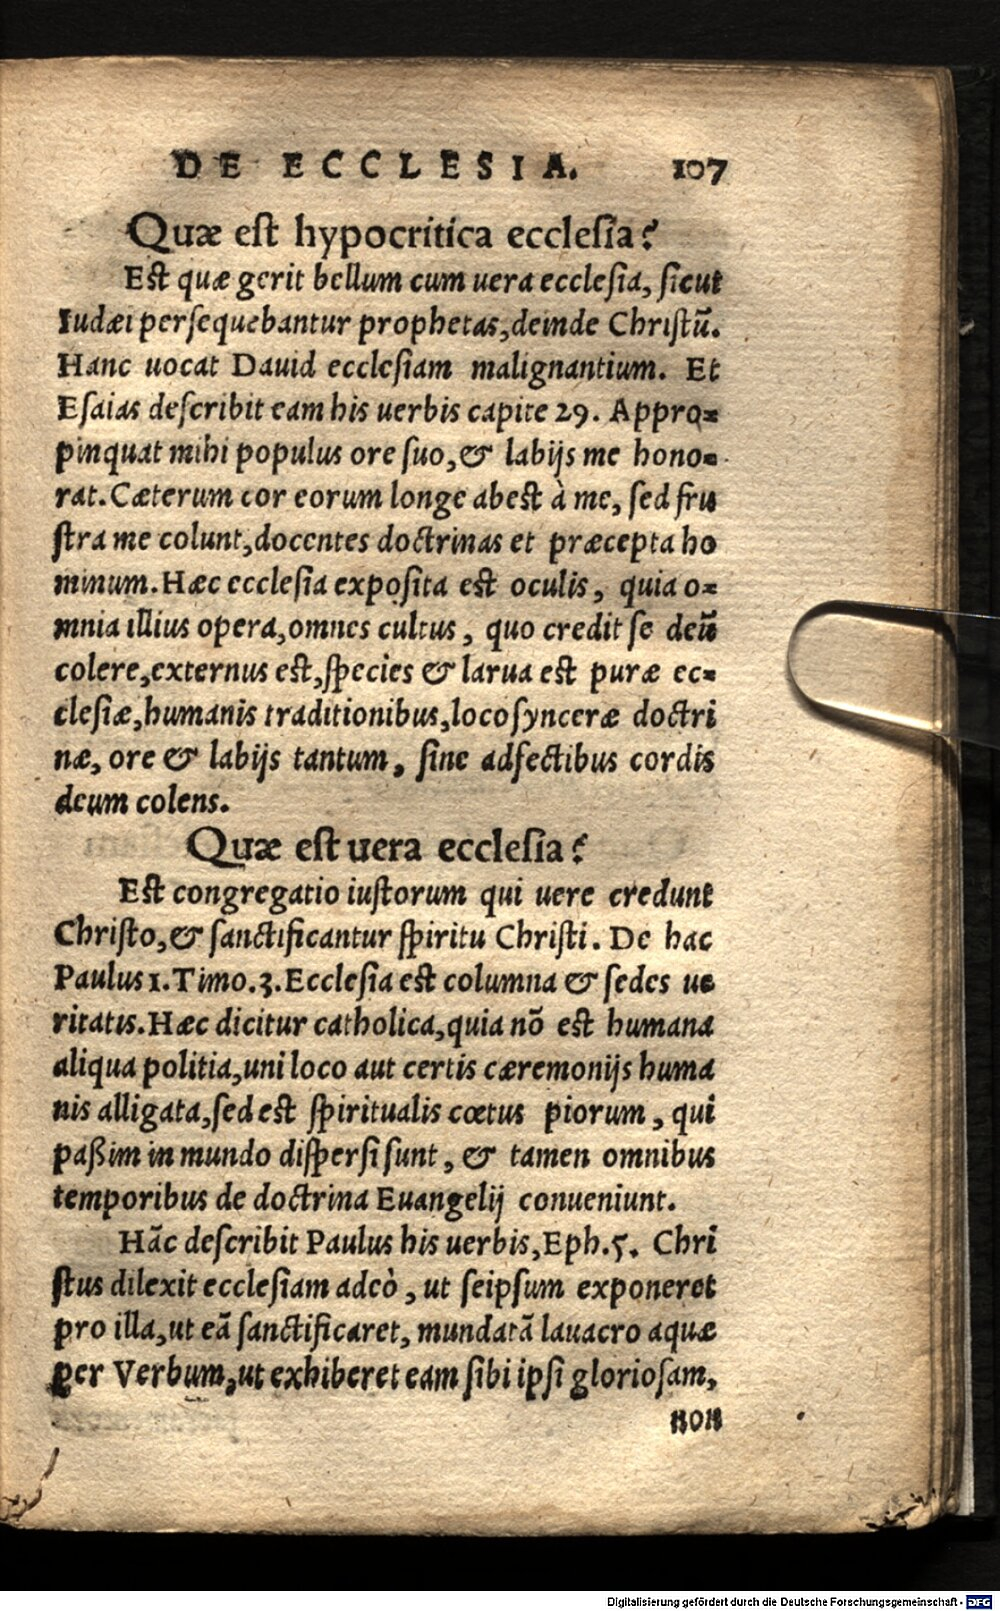 DE ECCLESIA. 107
Quæ est hypocritica ecclesia?
Est quæ gerit bellum cum uera ecclesia, sicut
Iudæi persequebantur prophetas, deinde Christū.
Hanc uocat Dauid ecclesiam malignantium. Et
Esaias describit eam his uerbis capite 29. Appro=
pinquat mihi populus ore suo, & labijs me hono=
rat. Cæterum cor eorum longe abest à me, sed fru
stra me colunt, docentes doctrinas et præcepta ho
minum. Hæc ecclesia exposita est oculis, quia o=
mnia illius opera, omnes cultus, quo credit se deū
colere, externus est, species & larua est puræ ec=
clesiæ, humanis traditionibus, loco synceræ doctri
næ, ore & labijs tantum, sine adfectibus cordis
deum colens.
Quæ est uera ecclesia?
Est congregatio iustorum qui uere credunt
Christo, & sanctificantur spiritu Christi. De hac
Paulus 1. Timo. 3. Ecclesia est columna & sedes ue
ritatis. Hæc dicitur catholica, quia nō est humana
aliqua politia, uni loco aut certis cæremonijs huma
nis alligata, sed est spiritualis cœtus piorum, qui
paßim in mundo dispersi sunt, & tamen omnibus
temporibus de doctrina Euangelij conueniunt.
Hāc describit Paulus his uerbis, Eph. 5. Chri
stus dilexit ecclesiam adeò, ut seipsum exponeret
pro illa, ut eā sanctificaret, mundatā lauacro aquæ
per Verbum, ut exhiberet eam sibi ipsi gloriosam,
non
Digitalisierung gefördert durch die Deutsche Forschungsgemeinschaft - DFG